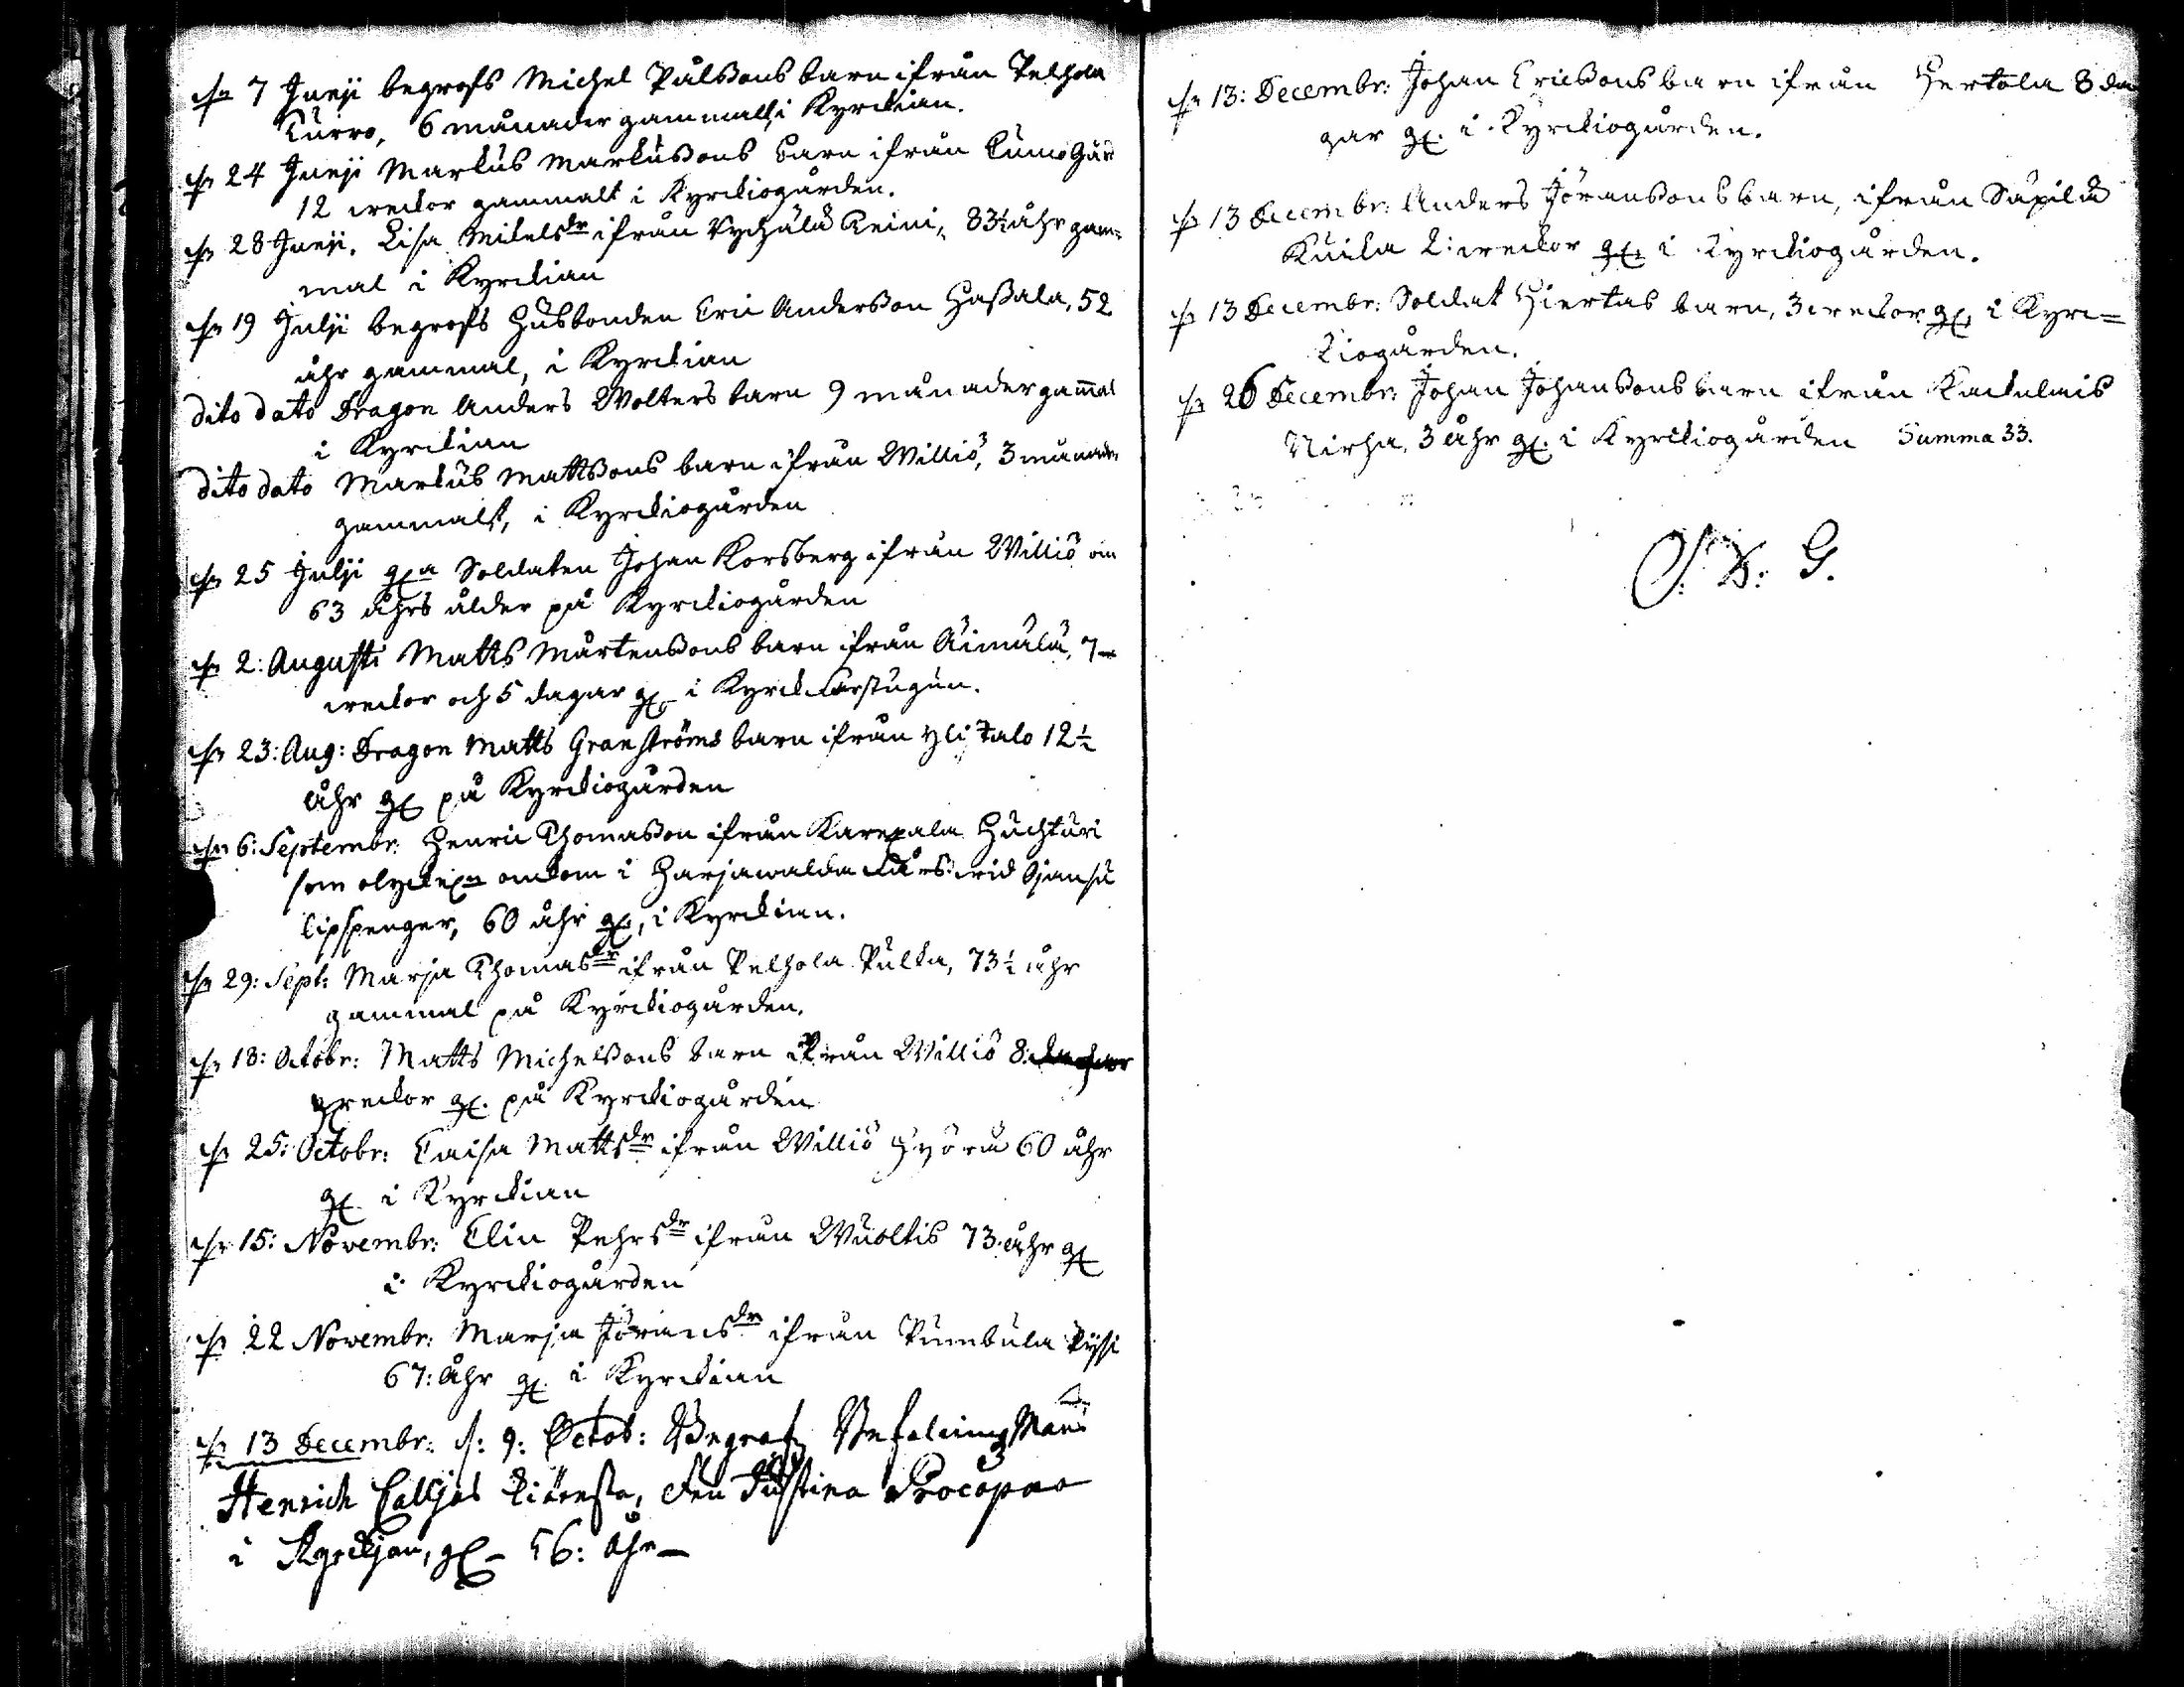 d 7 Junji begrofs Michel Pålssons barn ifrån Pelhola
Kurro, 6 månader gammalt, i Kyrckian.
d 24 Junji Markus Markussons barn ifrån Cumo Gård
12 weckor gammalt i Kyrckiogården.
d 28 Junji. Lisa Mikelsdr ifrån Pychälä Reini, 83½ åhr gam-
mal i Kyrckian
d 19 Julji begrofs Husbonden Eric Andersson Hassala, 52
åhr gammal, i Kyrckian
dito dato Dragon Anders Wolters barn 9 månader gamalt
i Kyrckian
dito dato Markus Mattssons barn ifrån Williö, 3 månader
gammalt, i Kyrckiogården
d 25 Julji Soldaten Johan Korsberg ifrån Williö om
63 åhrs ålder på Kyrckiogården
d 2: Augusti Matts Mårtenssons barn ifrån Äimälä, 7
weckor och 5 dagar gl i Kyrckforstugun.
d 23: Aug: Dragon Matts Granströms barn ifrån Yli Talo 12½
åhr gl på Kyrckiogården
d 6: Septembr: Henric Thomasson ifrån Karepala Huchturi
som olyckel omkom i Harjawalda wid
60 åhr gl, i Kyrckian.
d 29: Sept: Marja Thomasdr ifrån Pelhola Pulka, 73½ åhr
gammal på Kyrckiogården.
d 18: Octobr: Matts Michelssons barn ifrån Williö 8:
weckor gl. på Kyrckiogården
d 25: Octobr: Caisa Mattsdr ifrån Williö Hyörä 60 åhr
gl. i Kyrckian
d 15: Novembr: Elin Pehrsdr ifrån Wuoltis 73 åhr gl
i Kyrckiogården
d 22 Novembr: Marja Jöransdr ifrån Pumbula Pyssi
67: åhr gl. i Kyrckian
d 13 Decembr: d: 9: Octob: Begrofs Befalnings Man
Henrich Callias kiäresta, fru Justina Procopaa
i Kyrckjan, gl 56: åhr
d 13: Decembr: Johan Ericssons barn ifrån Hertola 8 da
gar gl. i Kyrckiogården.
d 13 Decembr: Anders Jöranssons barn, ifrån Säpilä
Knicka 2: weckor gl, i Kyrckiogården.
d 13 Decembr: Soldat Hiertas barn, 3 weckor gl, i Kyrc=
kiogården.
d 26 Decembr: Johan Johanssons barn ifrån Kackulais
Nirha, 3 åhr gl. i Kyrckiogården Summa 33.
S: D: G.